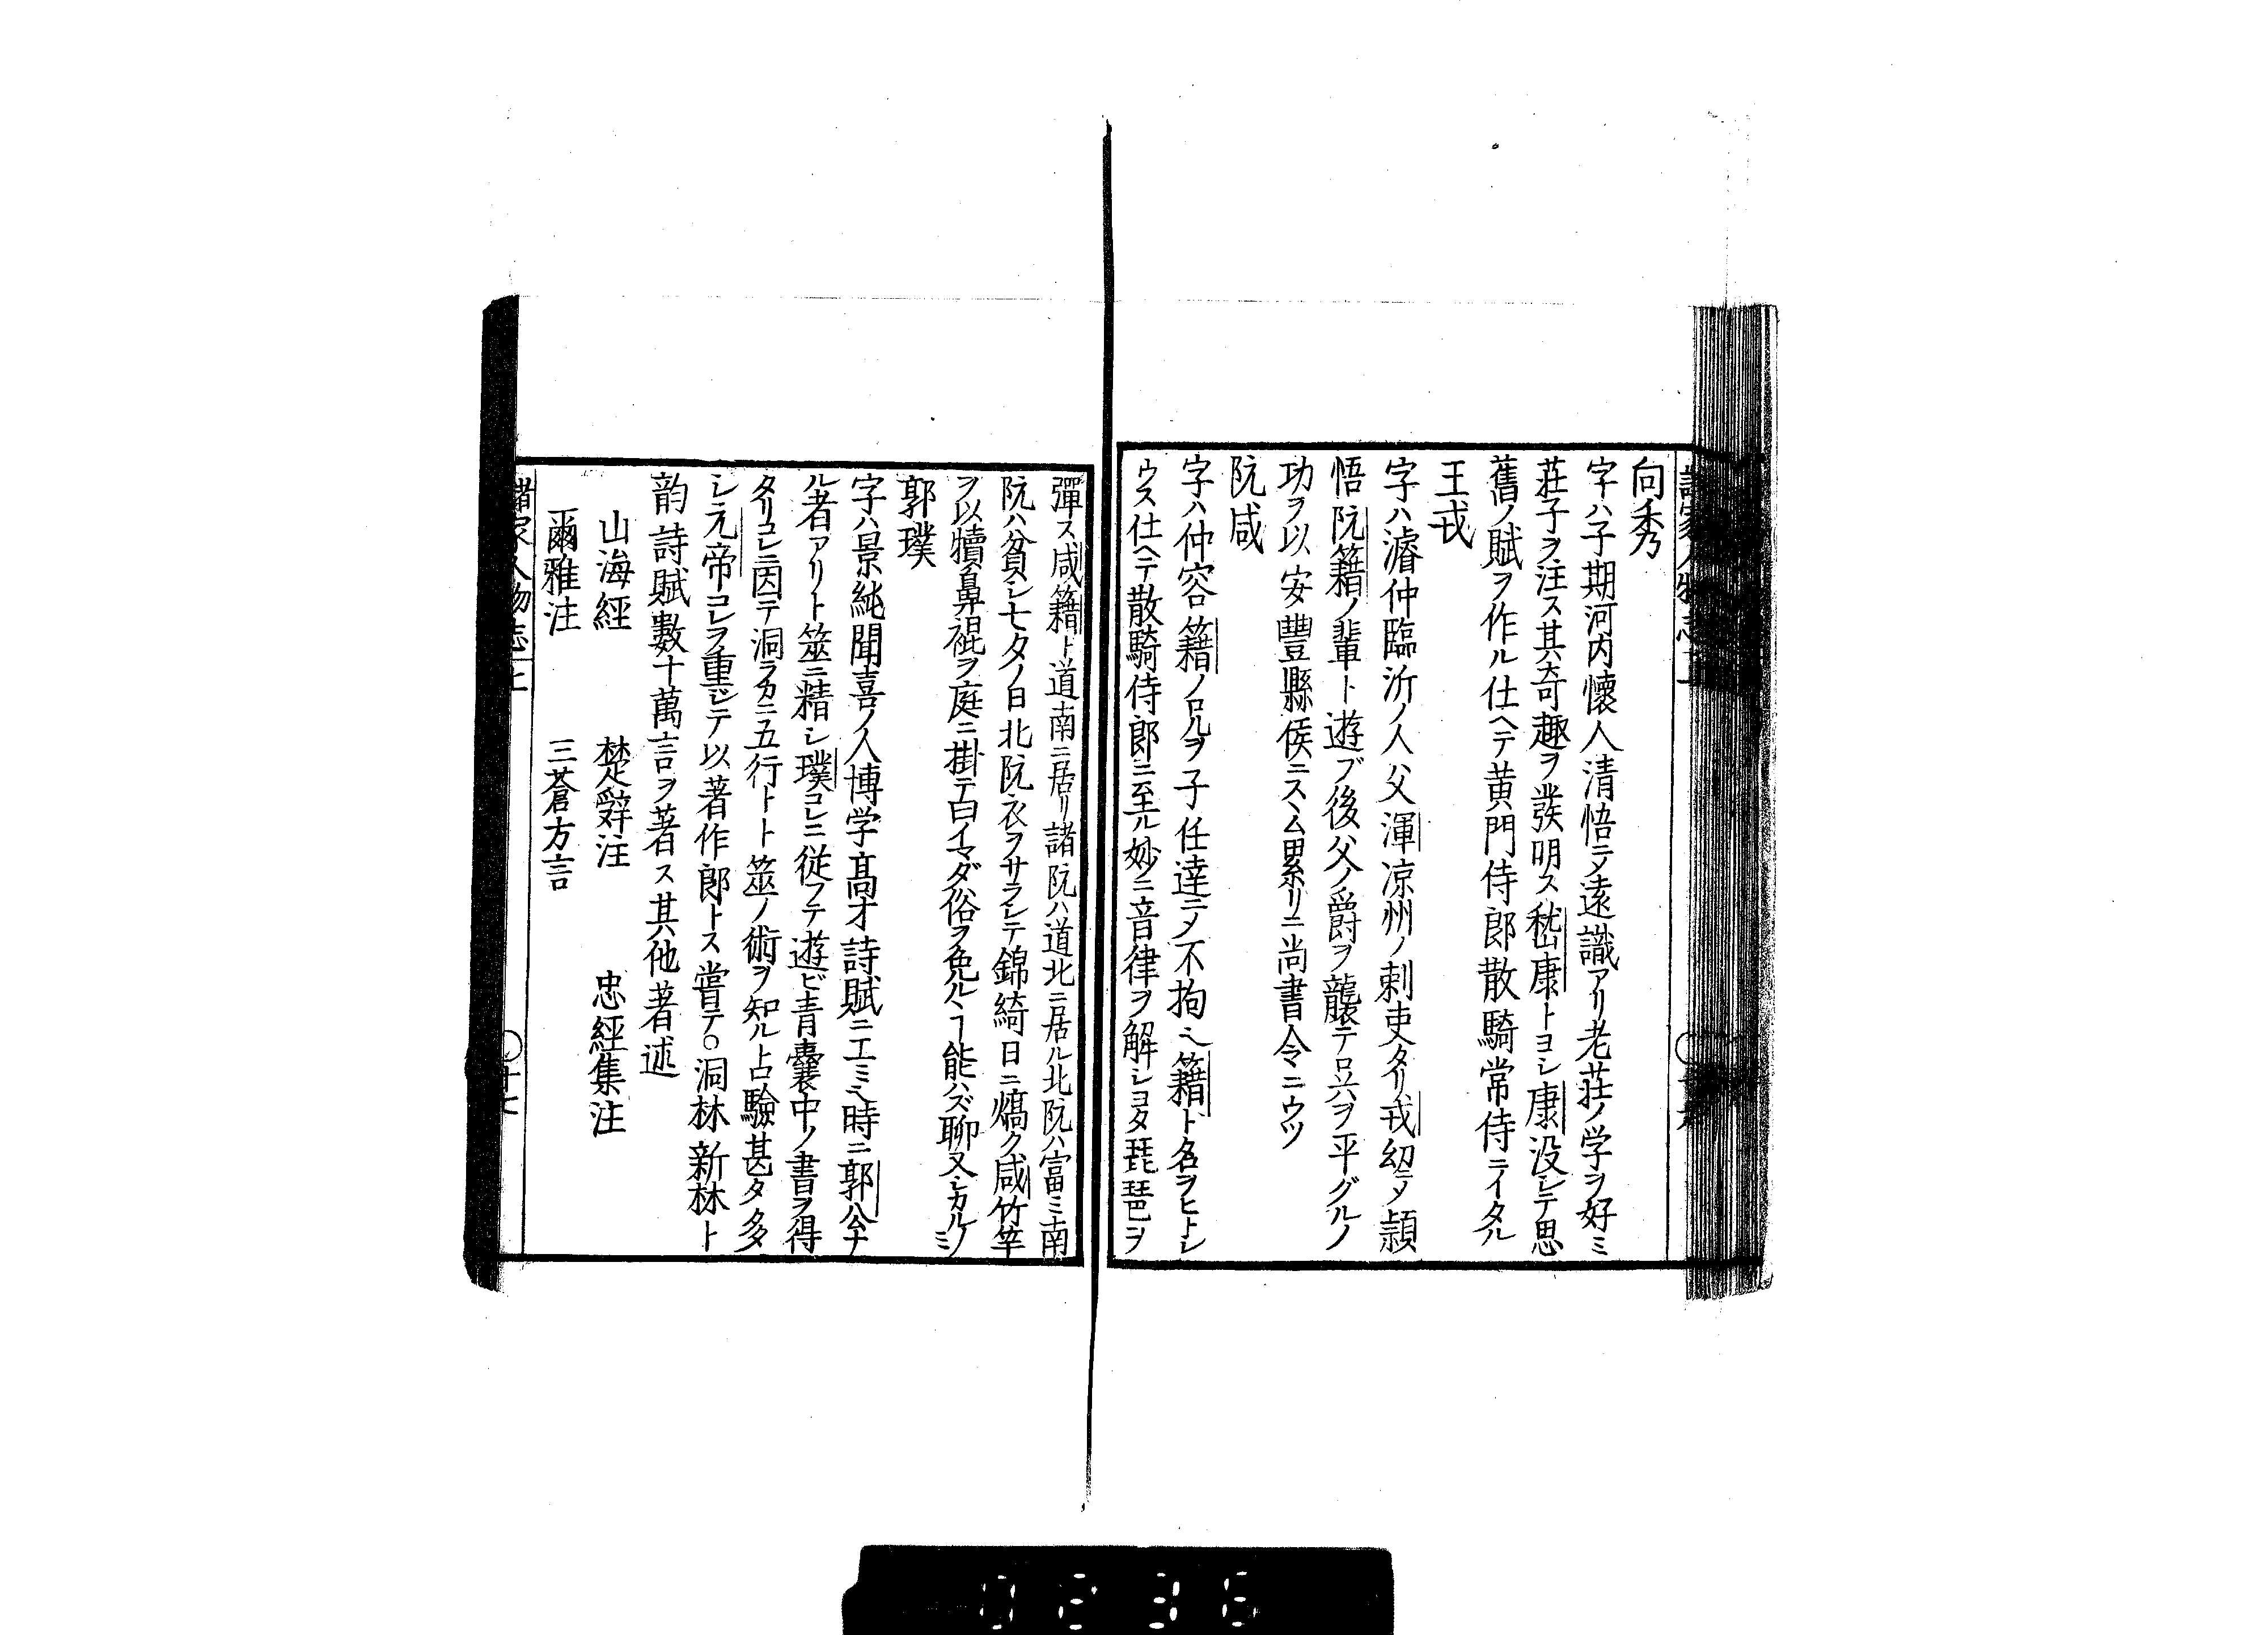 向秀
字ハ子期河内懷人清悟ニメ遠識アリ老莊ノ学ヲ好ミ
莊子ヲ注ス其奇趣ヲ發明ス嵆康トヨシ康没シテ思
舊ノ賦ヲ作ル仕ヘテ黄門侍郎散騎常侍ニイタル
王戎
字ハ濬仲臨沂ノ人父渾凉州ノ刺吏タリ戎幼ニメ頴
悟阮籍ノ輩ト遊ブ後父ノ爵ヲ襲テ呉ヲ平グルノ
功ヲ以安豐縣侯ニスヽム累リニ尚書令ニウツ
阮咸
字ハ仲容籍ノ兄ルヲ子任達ニメ不拘ミ籍ト名ヲヒトシ
ウス仕ヘテ散騎侍郎ニ至ル妙ニ音律ヲ解シヨク琵琶ヲ
彈ス咸籍ト道南ニ居リ諸阮ハ道北ニ居ル北阮ハ富ミ南
阮ハ貧シ七夕ノ日北阮衣ヲサラシテ錦綺日ニ熇ク咸竹竿
ヲ以犢鼻褌ヲ庭ニ掛テ曰イマダ俗ヲ免ルヽヿ能ハズ聊又シカルノミ
郭璞
字ハ景純聞喜ノ人博学髙才詩賦ニ工ミ時ニ郭公ナ
ル者アリト筮ニ精シ璞コレニ従フテ遊ビ青囊中ノ書ヲ得
タリコレニ因テ洞ラカニ五行ト卜筮ノ術ヲ知ル占驗甚タ多
シ元帝コレヲ重ジテ以著作郎トス嘗テ○洞林新林ト
韵詩賦數十萬言ヲ著ス其他著述
山海經　楚辭注　忠經集注
爾雅注　三蒼方言
諸家人物志上
〇十七
0236